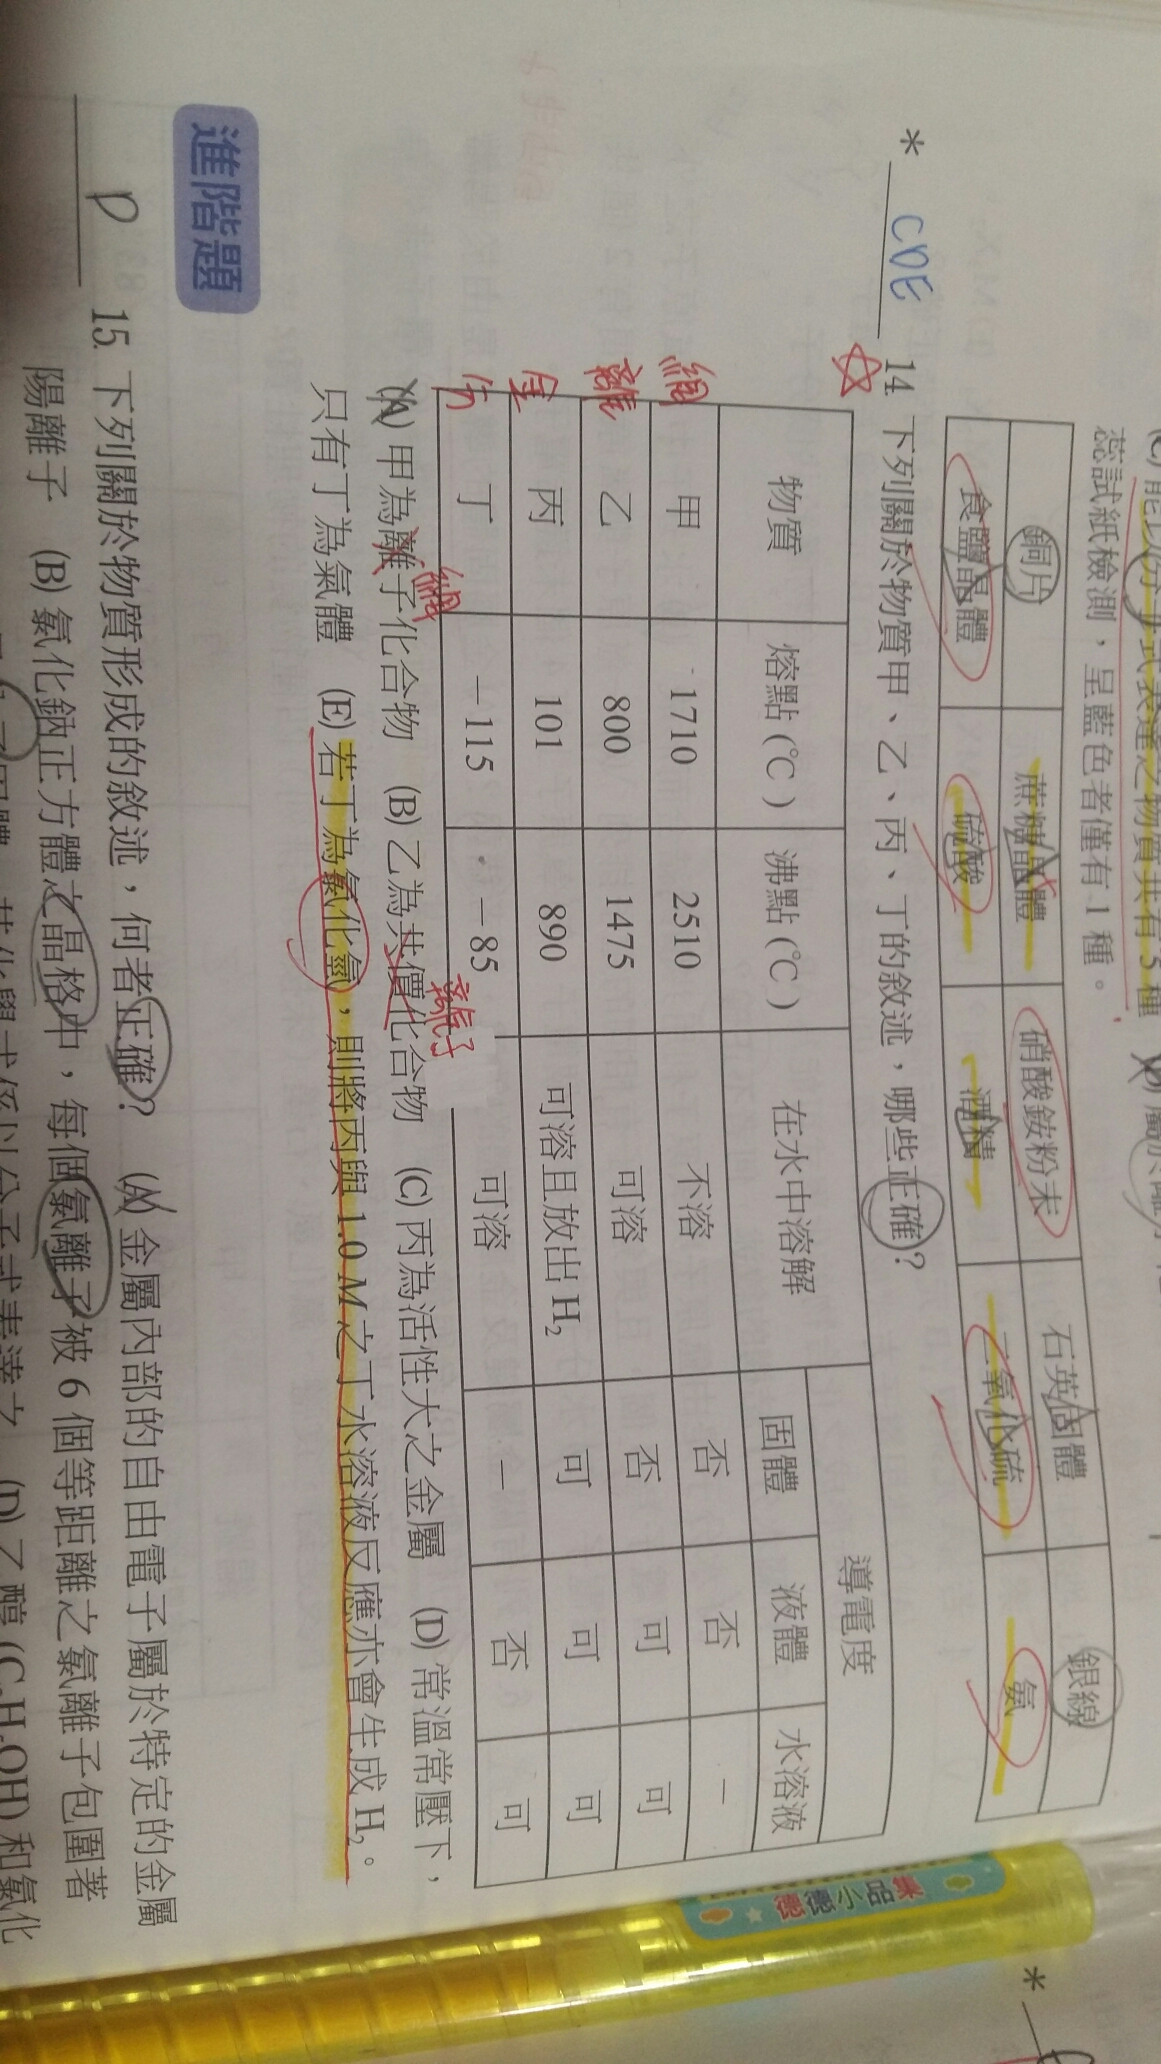 蕊試紙檢測，呈藍色者僅有 1 種。
銅片 蔗糖晶體 硝酸銨粉末 石英固體 銀線
食鹽晶體 硫酸 酒精 二氧化硫 氨
* CDE 14. 下列關於物質甲、乙、丙、丁的敘述，哪些正確？
物質 熔點 (°C) 沸點 (°C) 在水中溶解 導電度
固體 液體 水溶液
網 甲 1710 2510 不溶 否 否 –
離 乙 800 1475 可溶 否 可 可
金 丙 101 890 可溶且放出 H₂ 可 可 可
分 丁 –115 –85 可溶 – 否 可
離子
(A) 甲為離子化合物 (B) 乙為共價化合物 (C) 丙為活性大之金屬 (D) 常溫常壓下，
網
只有丁為氣體 (E) 若丁為氯化氫，則將丙與 1.0 M 之丁水溶液反應亦會生成 H₂。
進階題
D 15. 下列關於物質形成的敘述，何者正確？ (A) 金屬內部的自由電子屬於特定的金屬
陽離子 (B) 氯化鈉正方體之晶格中，每個氯離子被 6 個等距離之氯離子包圍著
德德小品集
*